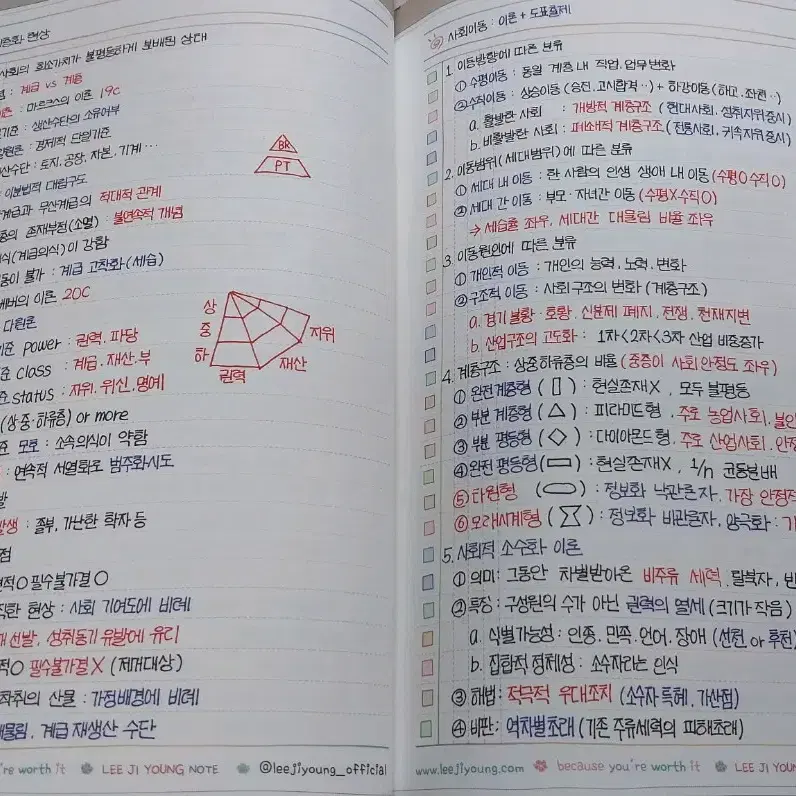 사회의 희소가치가 불평등하게 분배된 상태
계급 vs 계층
마르크스의 이론 19C
생산수단의 소유여부
경제적 단일기준
산수단 : 토지, 공장, 자본, 기계 …
이분법적 대립구도
계급과 무산계급의 적대적 관계
층의 존재부정(소멸) : 불연속적 개념
식(계급의식)이 강함
동이 불가 : 계급 고착화(세습)
베버의 이론 20C
다원론
준 power : 권력, 파당
준 class : 계급, 재산, 부
준 status : 지위, 위신, 명예
(상·중·하류층) or more
준 모호 : 소속의식이 약함
: 연속적 서열화로 범주화시도
발
발생 : 졸부, 가난한 학자 등
점
연적 O 필수불가결 O
직한 현상 : 사회 기여도에 비례
재 선발, 성취동기 유발에 유리
적 O 필수불가결 X (제거대상)
착취의 산물 : 가정배경에 비례
대물림, 계급 재생산 수단
BR
PT
상
중
하
권력
재산
지위
're worth it LEE JI YOUNG NOTE @leejiyoung_official
사회이동 : 이론 + 도표출제
1. 이동방향에 따른 분류
① 수평이동 : 동일 계층 내 직업, 업무변화
② 수직이동 : 상승이동 (승진, 고시합격 ‥) + 하강이동 (하교, 좌천 ‥)
a. 활발한 사회 : 개방적 계층구조 (현대사회, 성취지위중시)
b. 비활발한 사회 : 폐쇄적 계층구조 (전통사회, 귀속지위중시)
2. 이동범위(세대범위)에 따른 분류
① 세대 내 이동 : 한 사람의 인생 생애 내 이동 (수평O 수직O)
② 세대 간 이동 : 부모·자녀간 이동 (수평X 수직O)
⇒ 세습률 좌우, 세대간 대물림 비율 좌우
3. 이동원인에 따른 분류
① 개인적 이동 : 개인의 능력, 노력, 변화
② 구조적 이동 : 사회구조의 변화 (계층구조)
a. 경기 불황·호황, 신분제 폐지, 전쟁, 천재지변
b. 산업구조의 고도화 : 1차<2차<3차 산업 비중증가
4. 계층구조 : 상중하류층의 비율 (중층이 사회안정도 좌우)
① 완전계층형 ( ) : 현실존재X, 모두 불평등
② 부분 계층형 ( ) : 피라미드형, 주로 농업사회, 불안
③ 부분 평등형 ( ) : 다이아몬드형, 주로 산업사회, 안정
④ 완전 평등형 ( ) : 현실존재X, 1/n 균등분배
⑤ 타원형 ( ) : 정보화 낙관론자, 가장 안정적
⑥ 모래시계형 ( ) : 정보화 비관론자, 양극화 :
5. 사회적 소수화 이론
① 의미 : 그동안 차별받아온 비주류 세력, 탈북자,
② 특징 : 구성원의 수가 아닌 권력의 열세 (크기가 작음)
a. 식별가능성 : 인종, 민족, 언어, 장애 (선천 or 후천)
b. 집합적 정체성 : 소수자라는 인식
③ 해법 : 적극적 우대조치 (소수자 특혜, 가산점)
④ 비판 : 역차별초래 (기존 주류세력의 피해초래)
www.leejiyoung.com because you're worth it LEE JI YOU